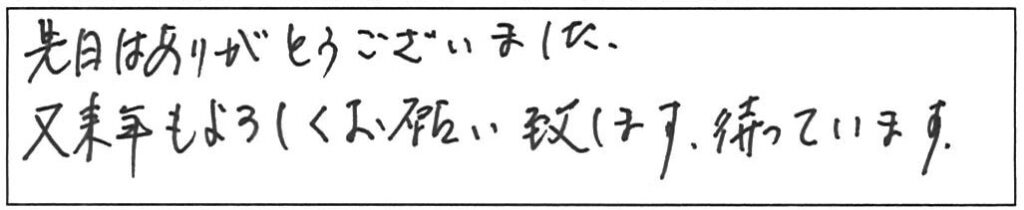 先日はありがとうございました.
又来年もよろしくお願い致します.待っています.